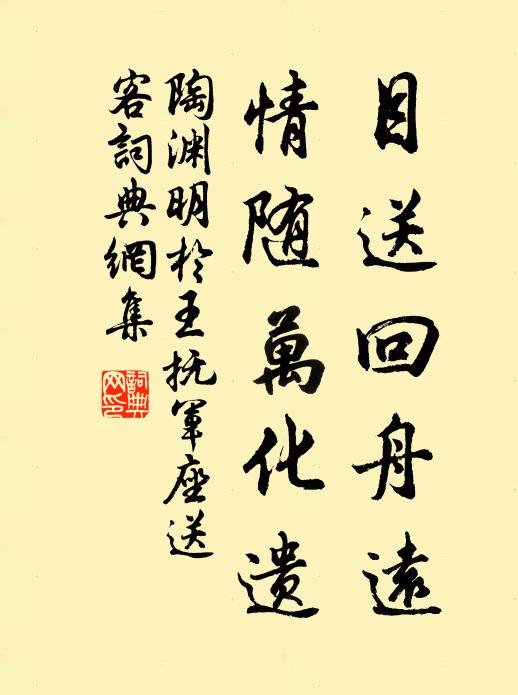 目送回舟遠
情随萬化遗
陶渊明於王抚軍座送
客詞典網集
詞典
网印